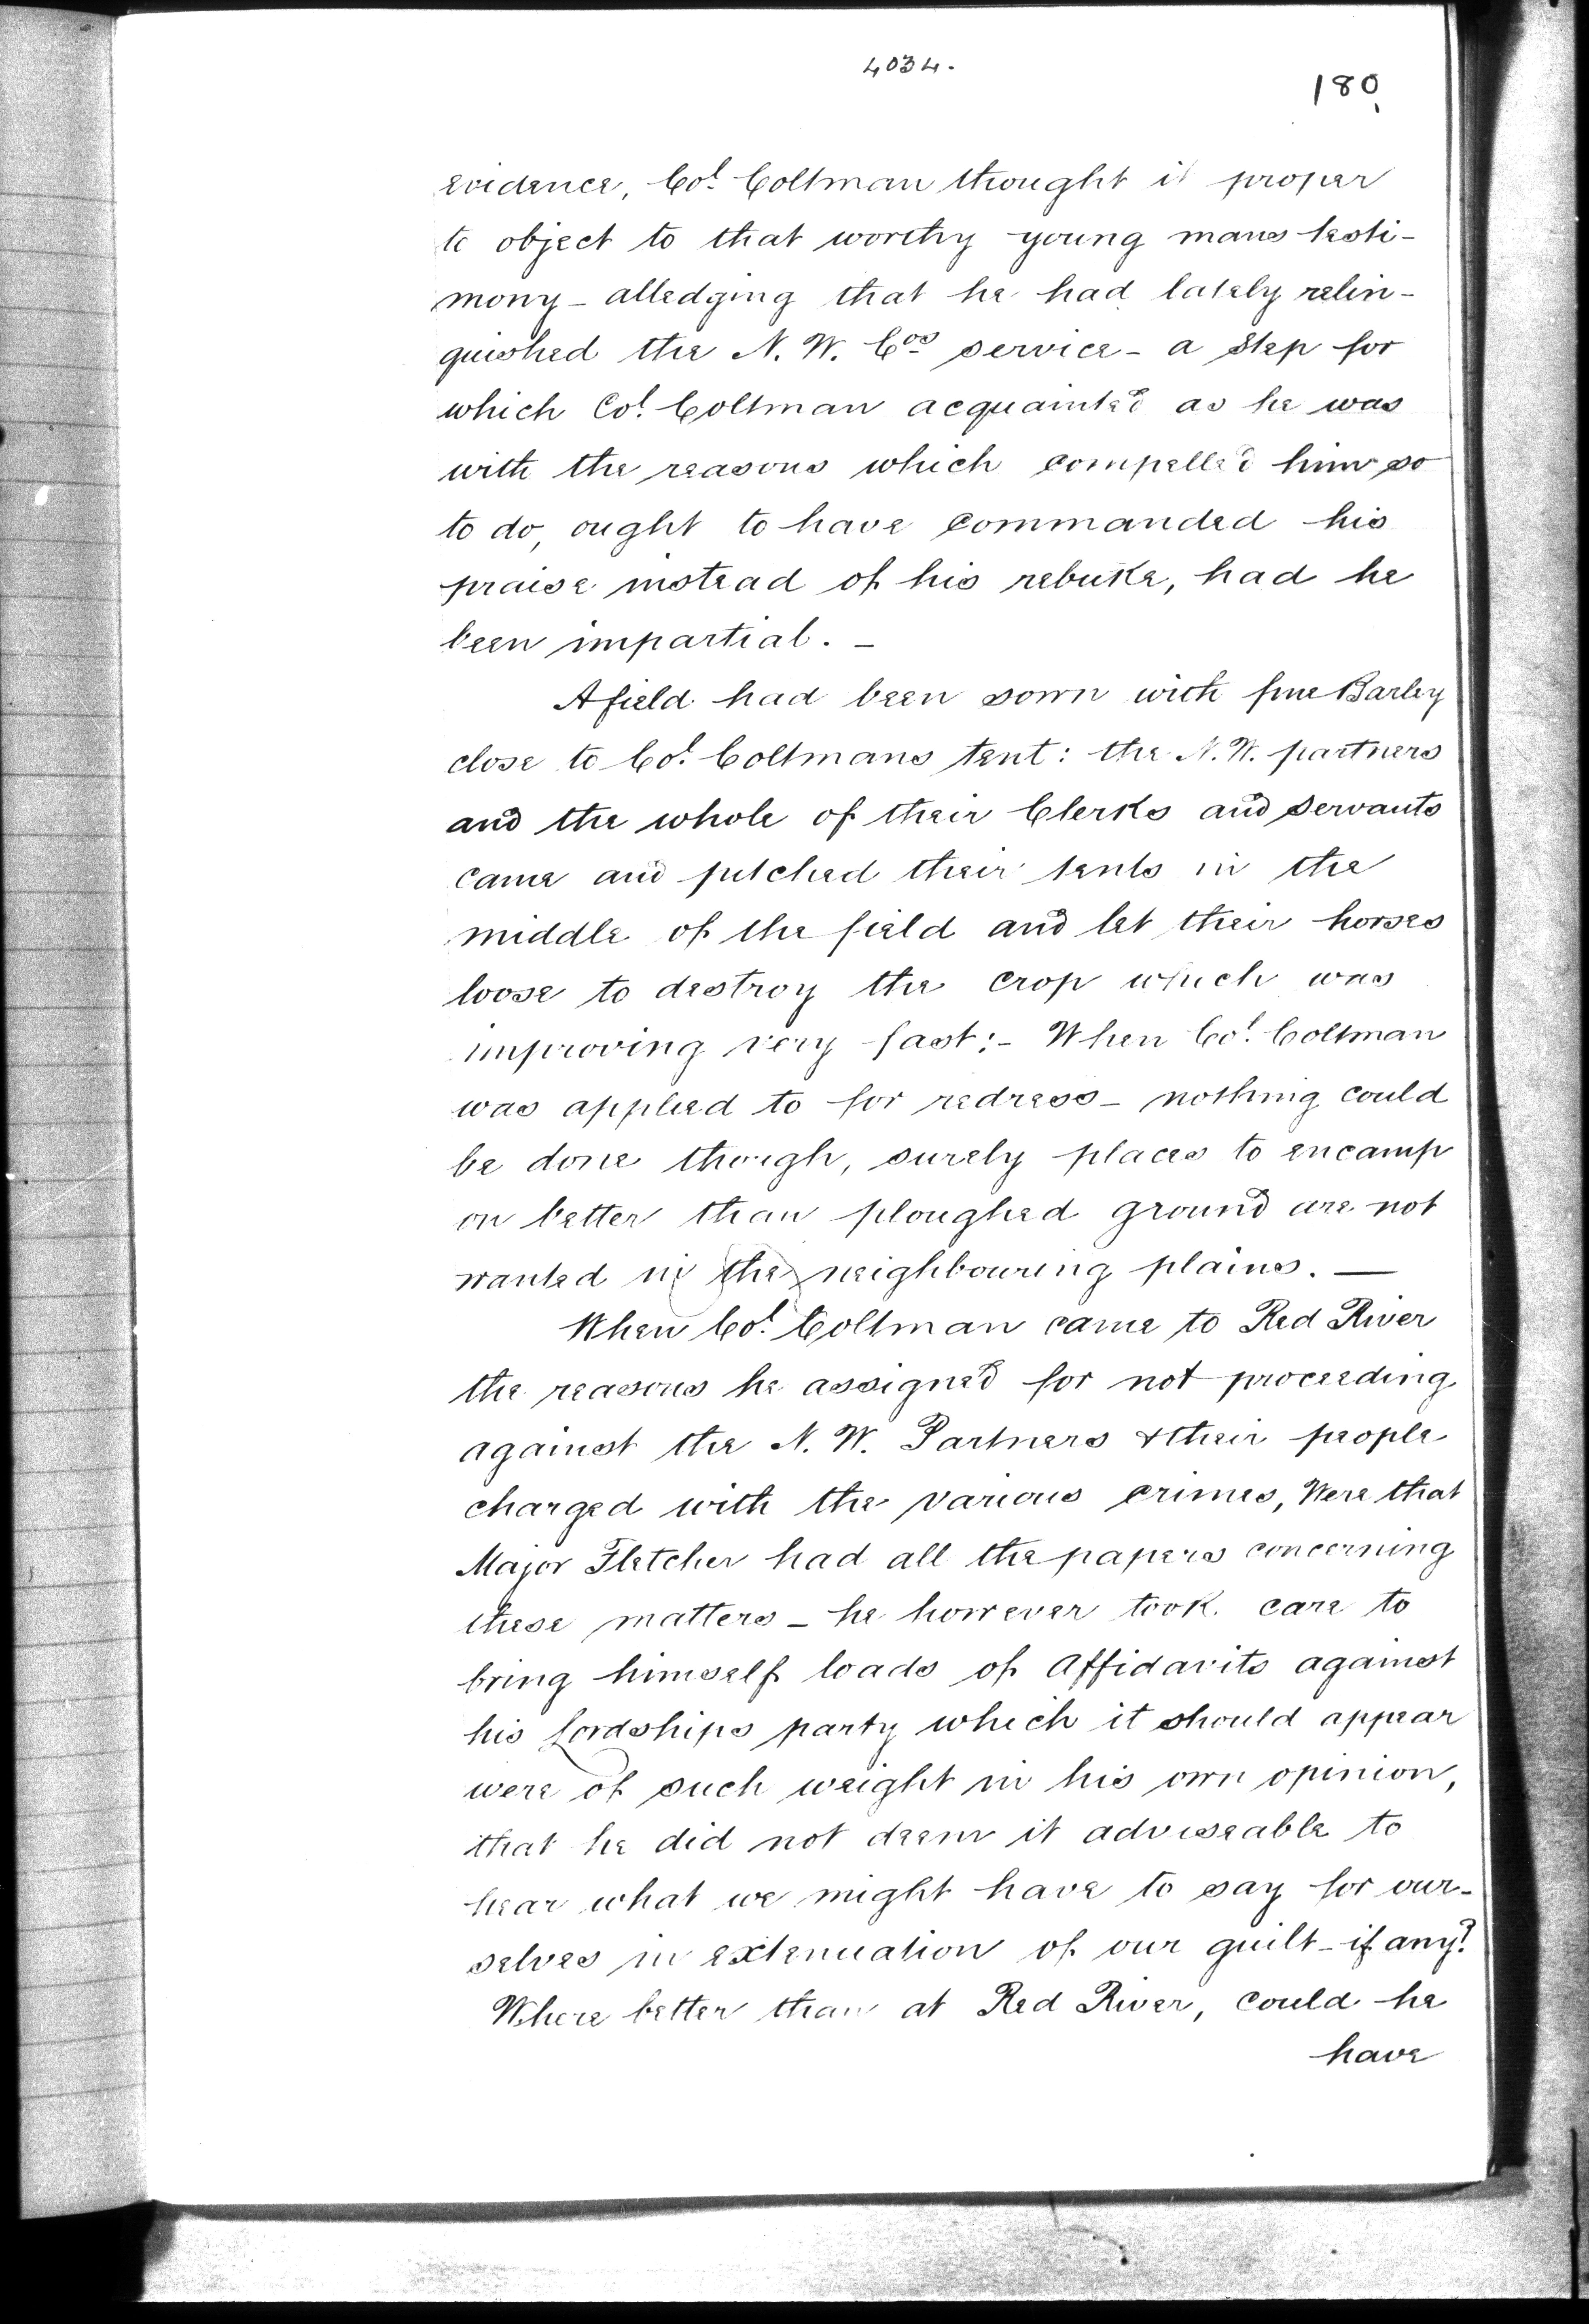 4034.
180
evidence, Col. Coltman thought it proper
to object to that worthy young mans testi-
mony - alledging that he had lately relin-
quished the N. W. Cos service - a step for
which Col. Coltman acquainted as he was
with the reasons which compelled him so
to do, ought to have commanded his
praise instead of his rebuke, had he
been impartial. -
A field had been sown with fine Barley
close to Col. Coltmans tent: the N. W. partners
and the whole of their Clerks and servants
came and pitched their tents in the
middle of the field and let their horses
loose to destroy the crop which was
improving very fast:- When Col. Coltman
was applied to for redress - nothing could
be done though, surely places to encamp
on better than ploughed ground are not
wanted in the neighbouring plains. —
When Col. Coltman came to Red River
the reasons he assigned for not proceeding
against the N. W. Partners & their people
charged with the various crimes, Were that
Major Fletcher had all the papers concerning
these matters - he however took care to
bring himself loads of affidavits against
his Lordships party which it should appear
were of such weight in his own opinion,
that he did not deem it adviseable to
hear what we might have to say for our-
selves in extenuation of our guilt - if any?
Where better than at Red River, could he
have